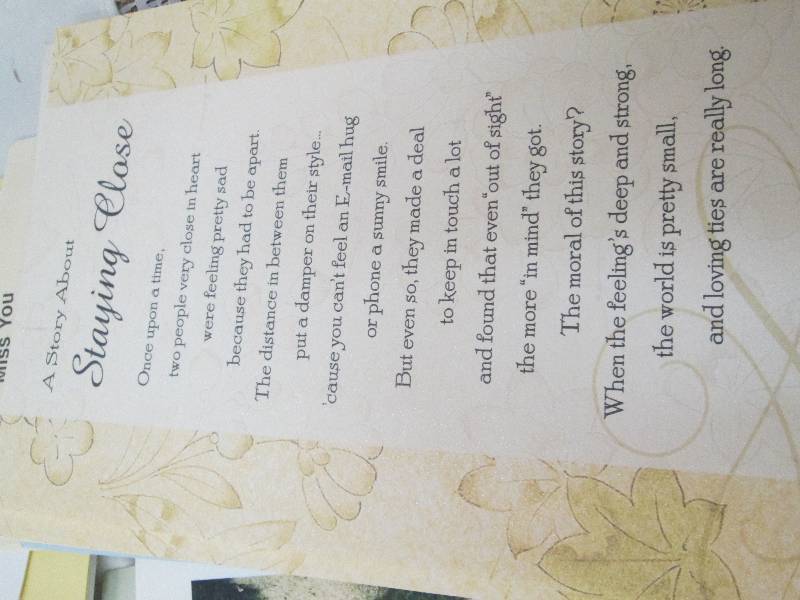 Miss You
A Story About
Staying Close
Once upon a time,
two people very close in heart
were feeling pretty sad
because they had to be apart.
The distance in between them
put a damper on their style...
'cause you can't feel an E-mail hug
or phone a sunny smile.
But even so, they made a deal
to keep in touch a lot
and found that even "out of sight"
the more "in mind" they got.
The moral of this story?
When the feeling's deep and strong,
the world is pretty small,
and loving ties are really long.